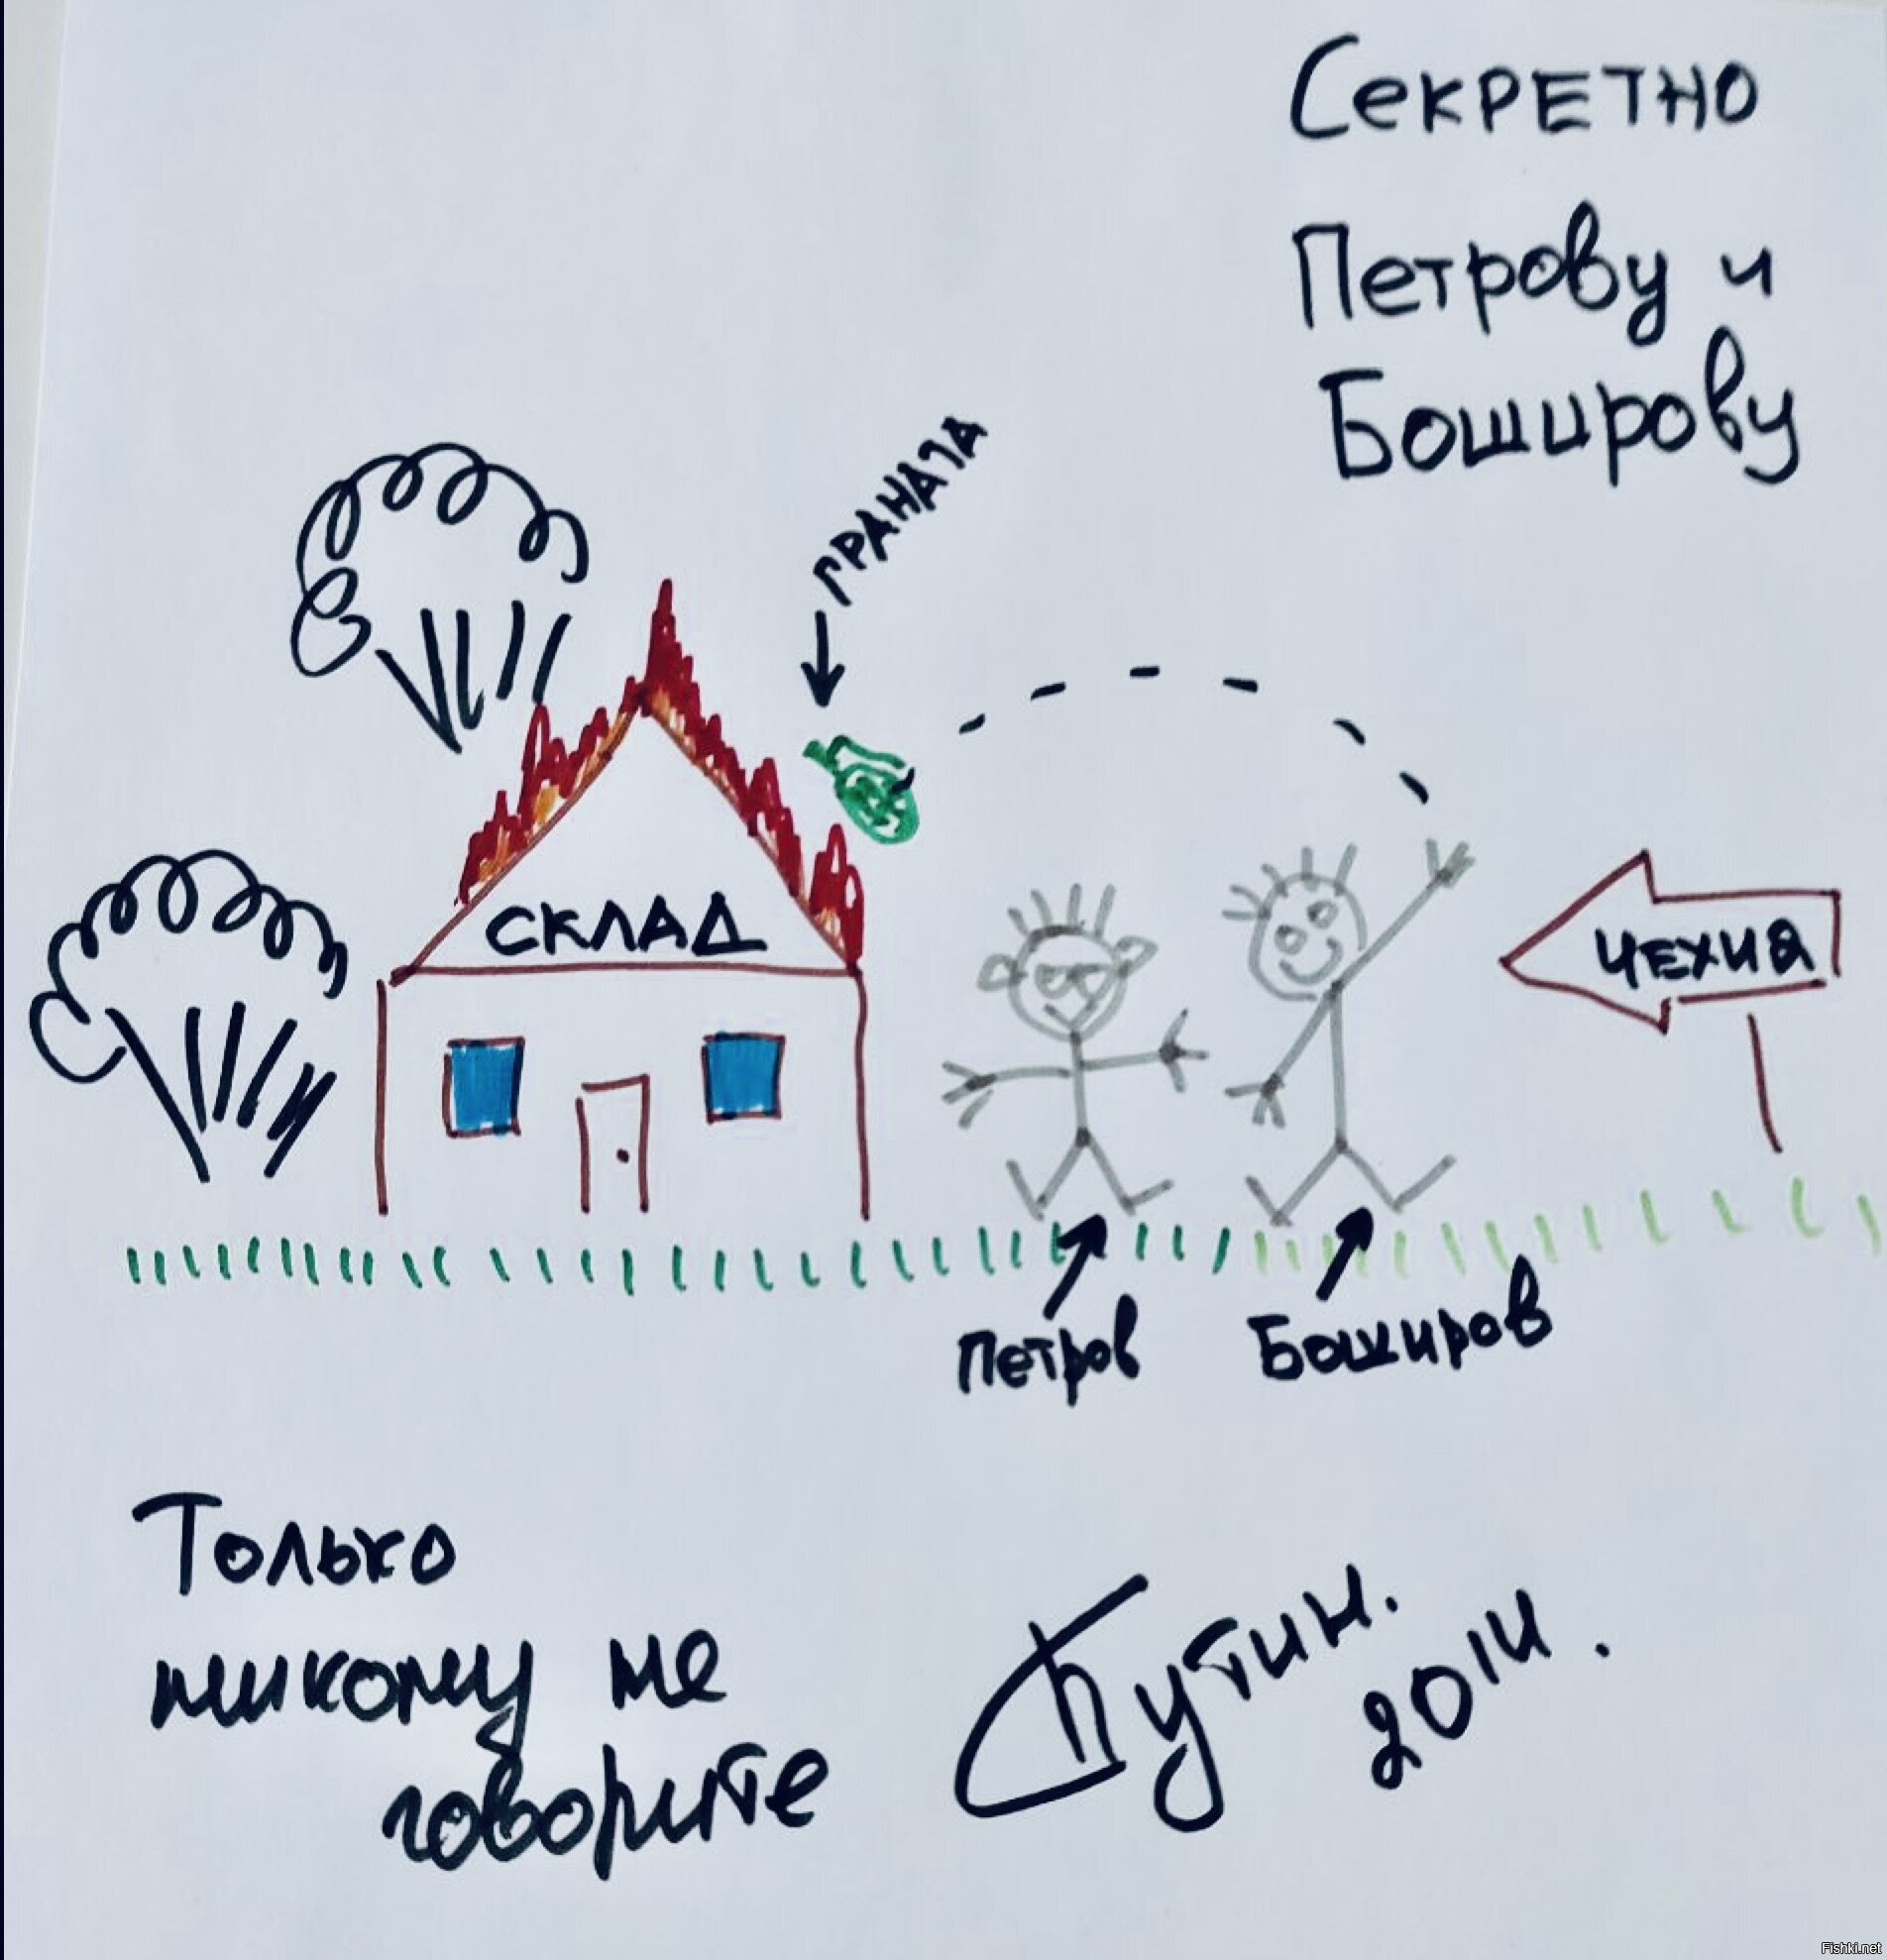 СЕКРЕТНО
Петрову и
Боширову
ГРАНАТА
СКЛАД
ЧЕХИЯ
Петров
Боширов
Только
никому не
говорите
Путин.
2014.
Fishki.net